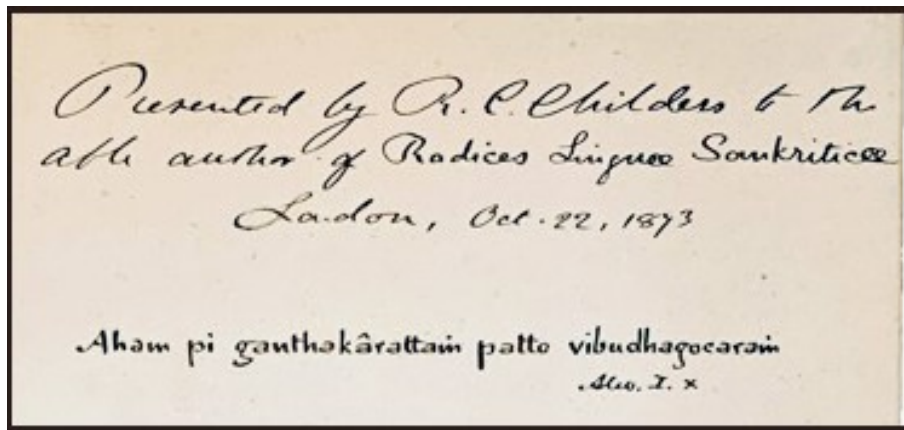 Presented by R. C. Childers to the
able author of Radices Linguae Sanskriticae
London, Oct. 22, 1873
Aham pi ganthakârattaṁ patto vibudhagocaraṁ